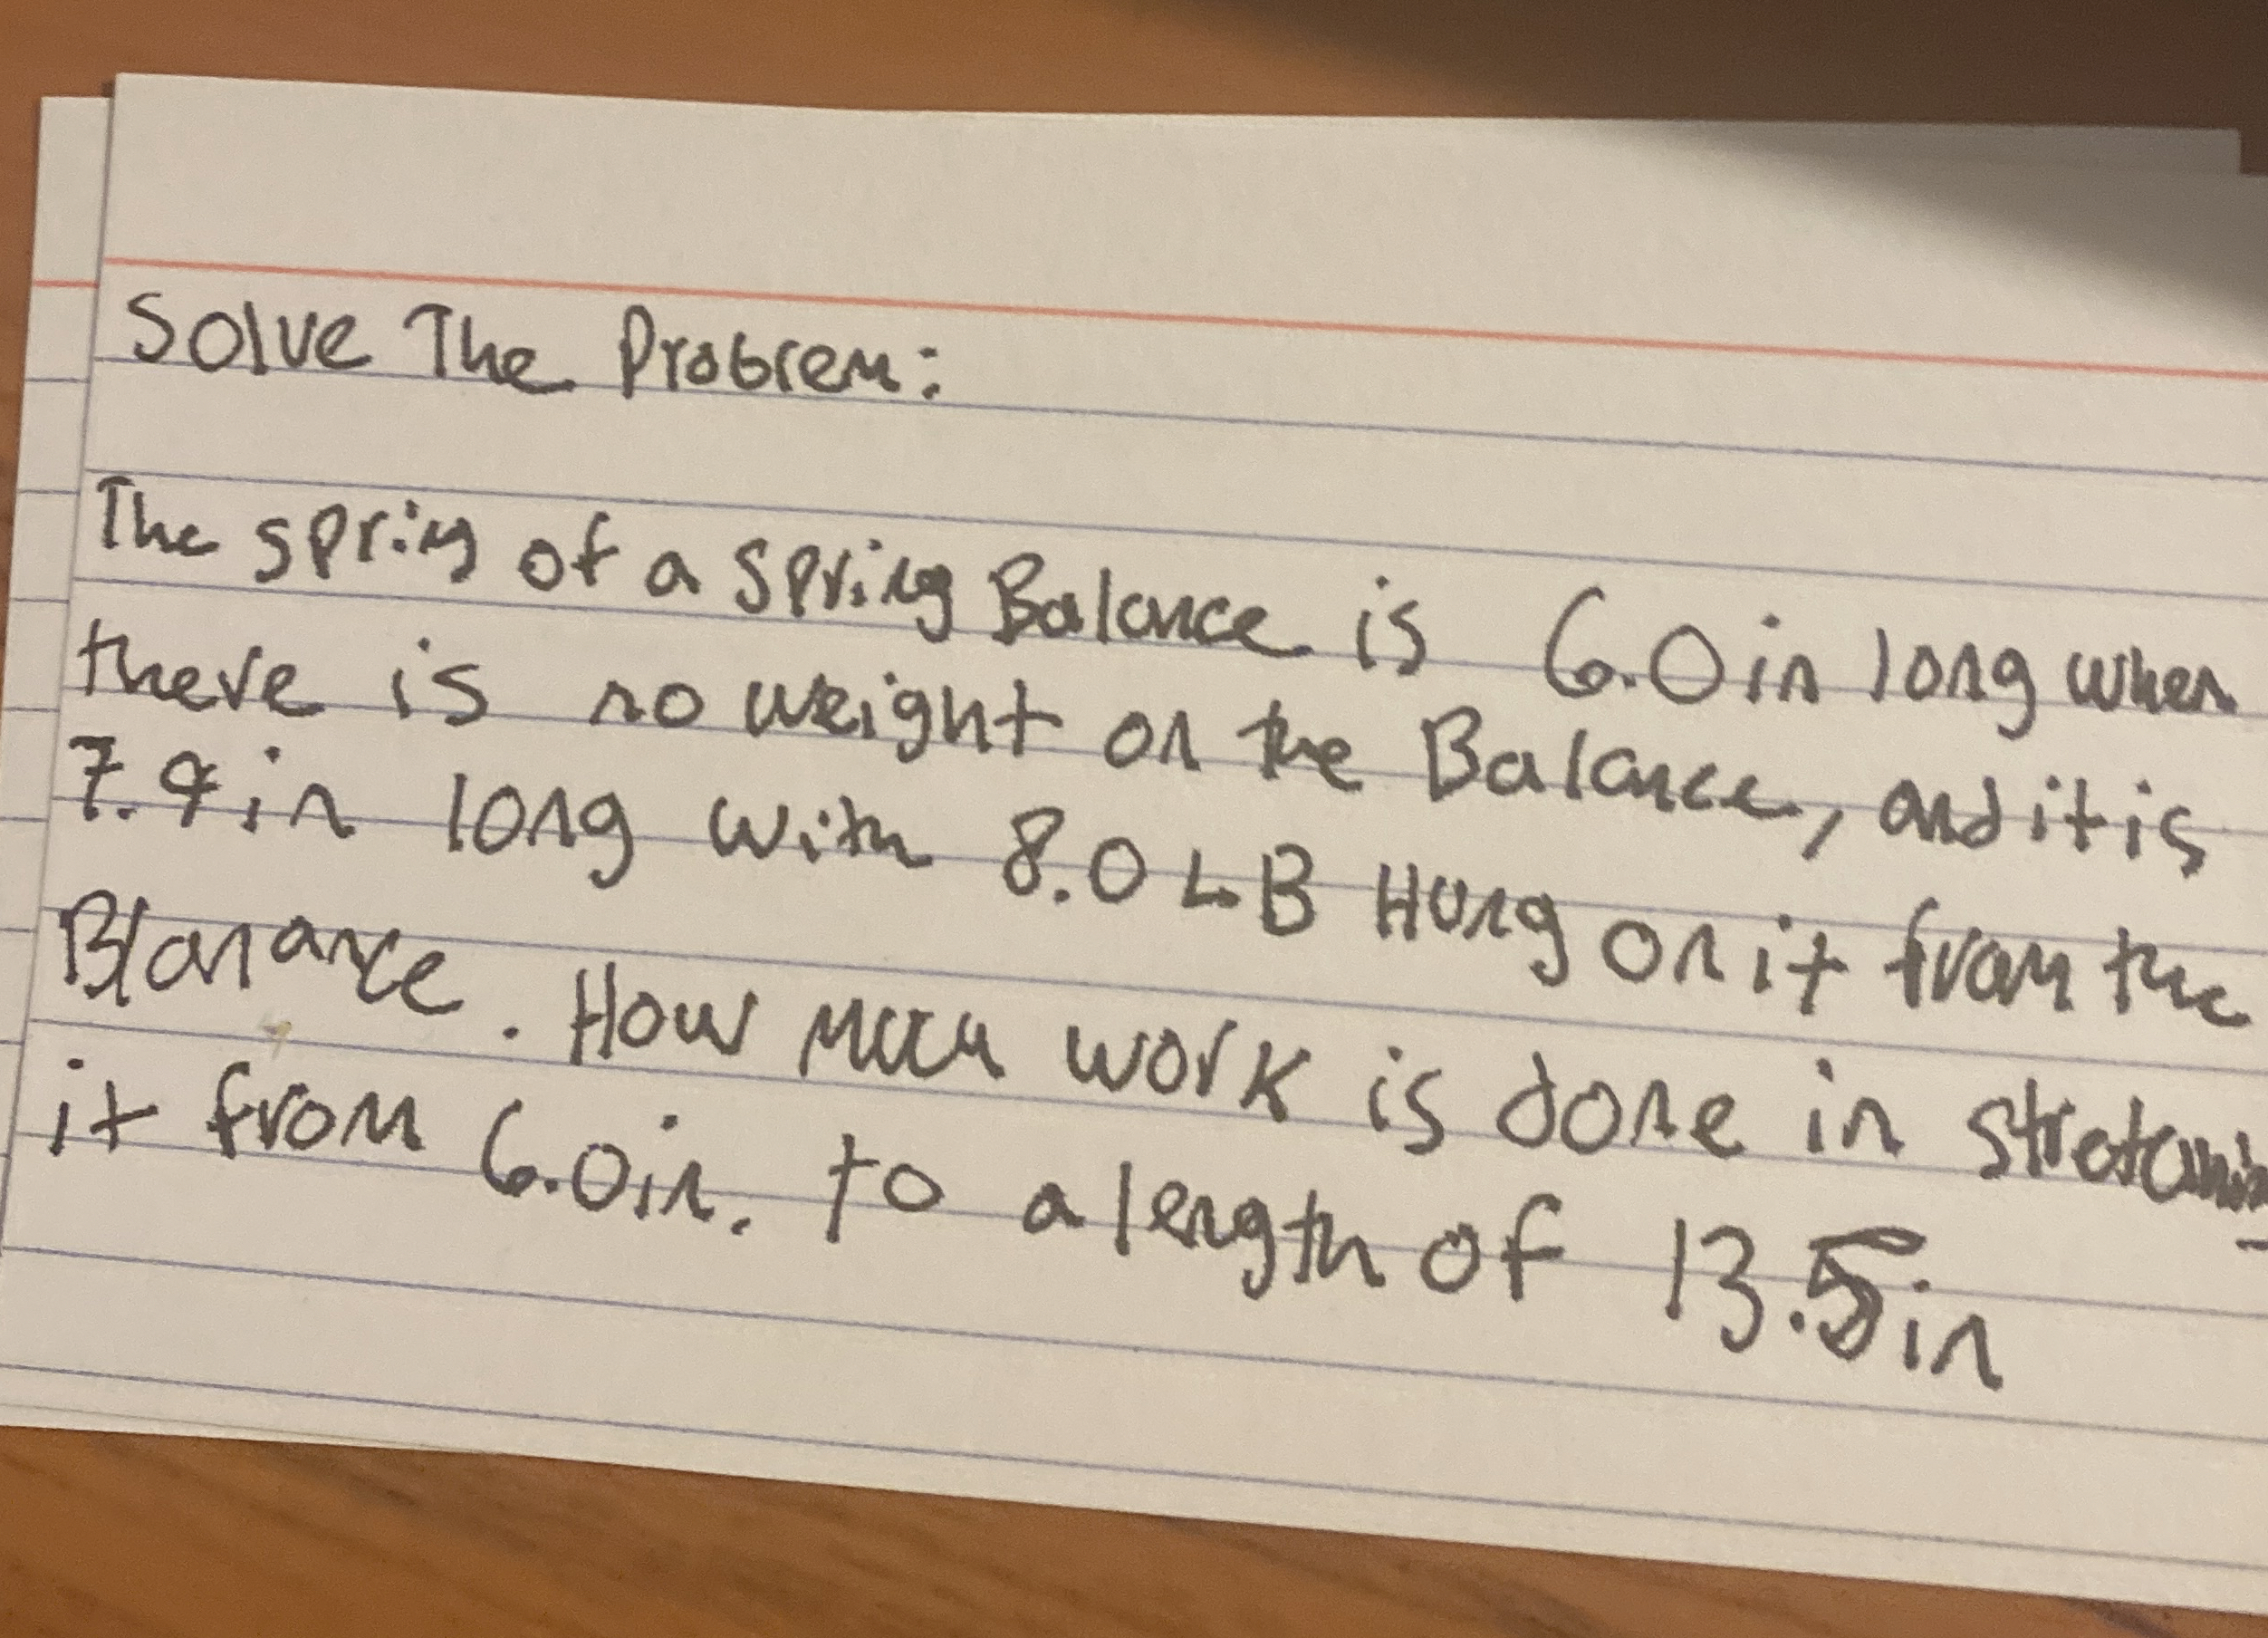 Solve The Problem:
The spring of a spring Balance is 6.0in long when
there is no weight on the Balance, and it is
7.9in long with 8.0 LB Hung on it from the
Blanance. How much work is done in
it from 6.0in. to a length of 13.5in